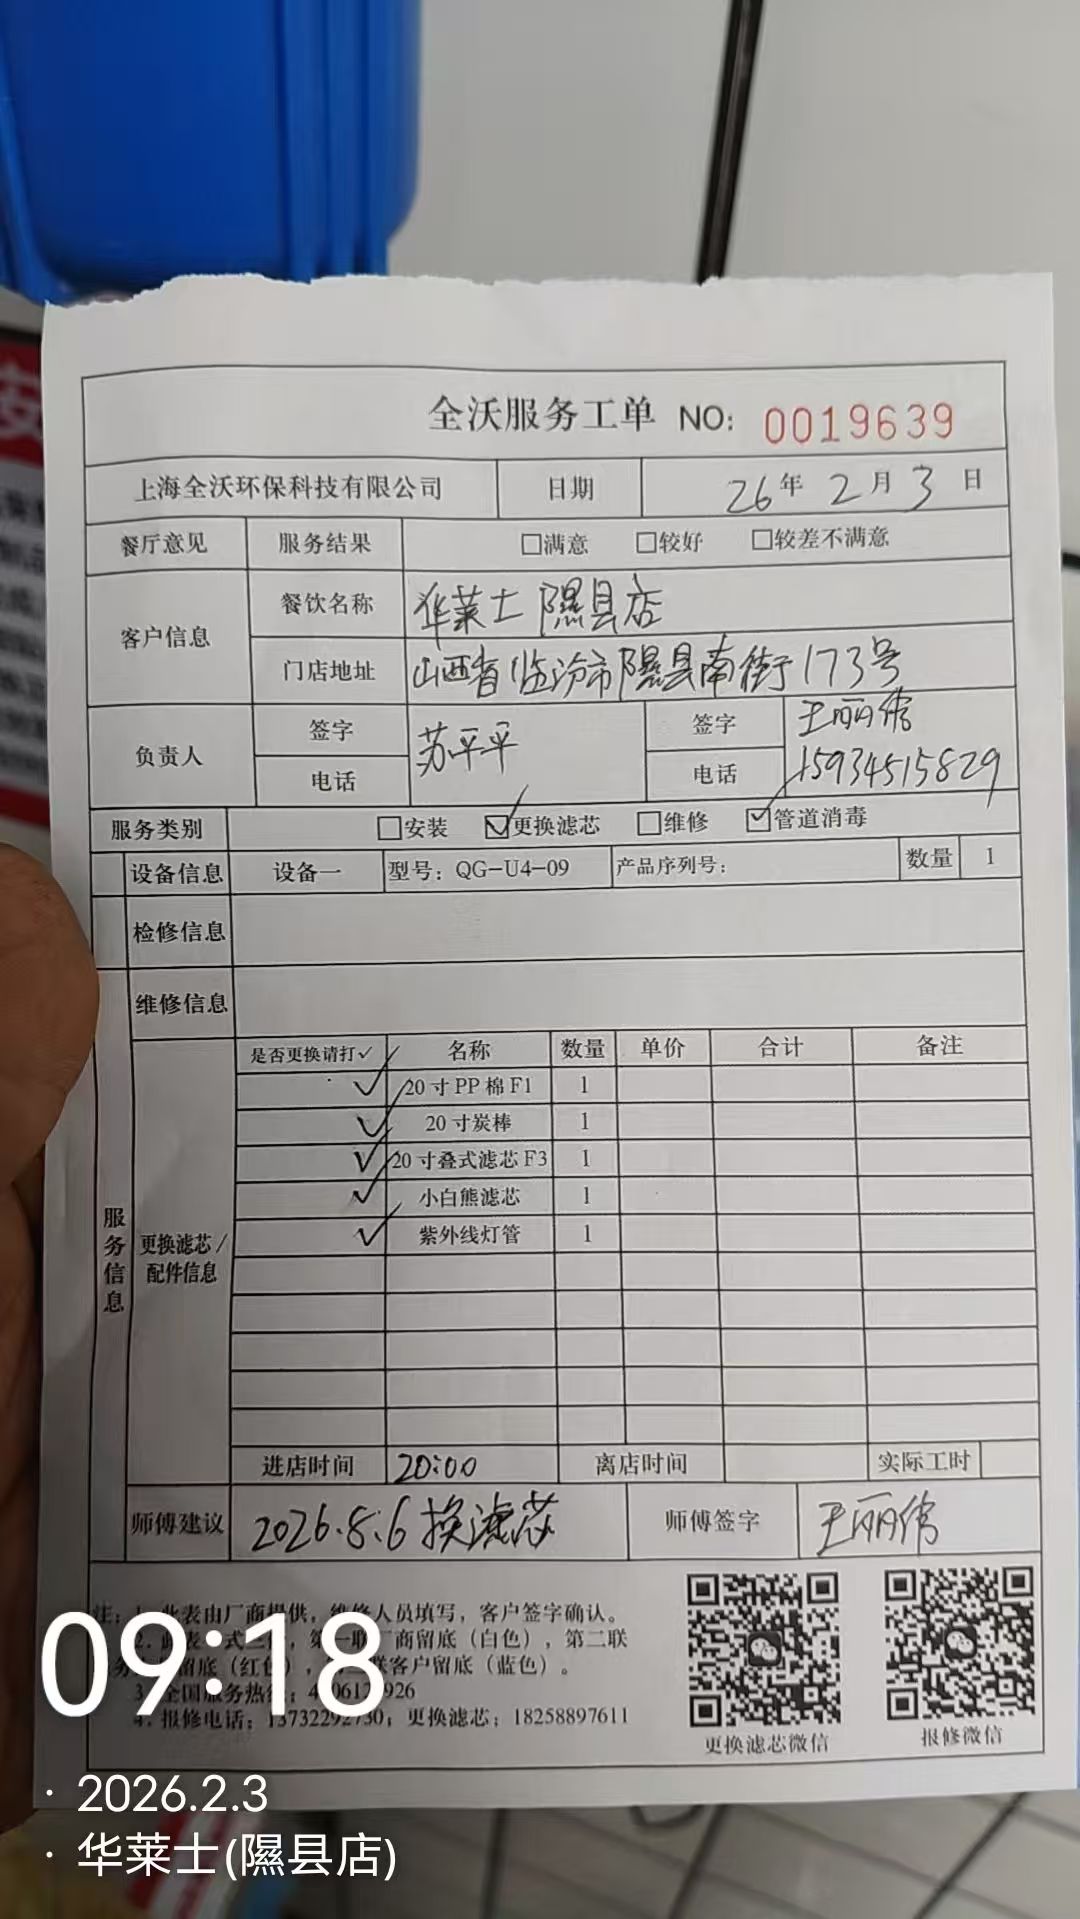 安
全沃服务工单 NO: 0019639
上海全沃环保科技有限公司 日期 26年2月3日
餐厅意见 服务结果 □满意 □较好 □较差不满意
客户信息 餐饮名称 华莱士 隰县店
门店地址 山西省临汾市隰县南街173号
负责人 签字 苏平平 签字 王丽伟
电话 电话 15934515829
服务类别 □安装 ☑更换滤芯 □维修 ☑管道消毒
设备信息 设备一 型号: QG-U4-09 产品序列号: 数量 1
检修信息
维修信息
服务信息
更换滤芯/
配件信息
是否更换请打✓ 名称 数量 单价 合计 备注
✓ 20寸PP棉F1 1
✓ 20寸炭棒 1
✓ 20寸叠式滤芯F3 1
✓ 小白熊滤芯 1
✓ 紫外线灯管 1
进店时间 20:00 离店时间 实际工时
师傅建议 2026.8.6换滤芯 师傅签字 王丽伟
注: 1. 此表由厂商提供，维修人员填写，客户签字确认。
式三 第一联厂商留底（白色），第二联
留底（红色），联客户留底（蓝色）。
全国服务热线: 926
4. 报修电话: 13732292730; 更换滤芯: 18258897611
更换滤芯微信 报修微信
09:18
· 2026.2.3
· 华莱士(隰县店)